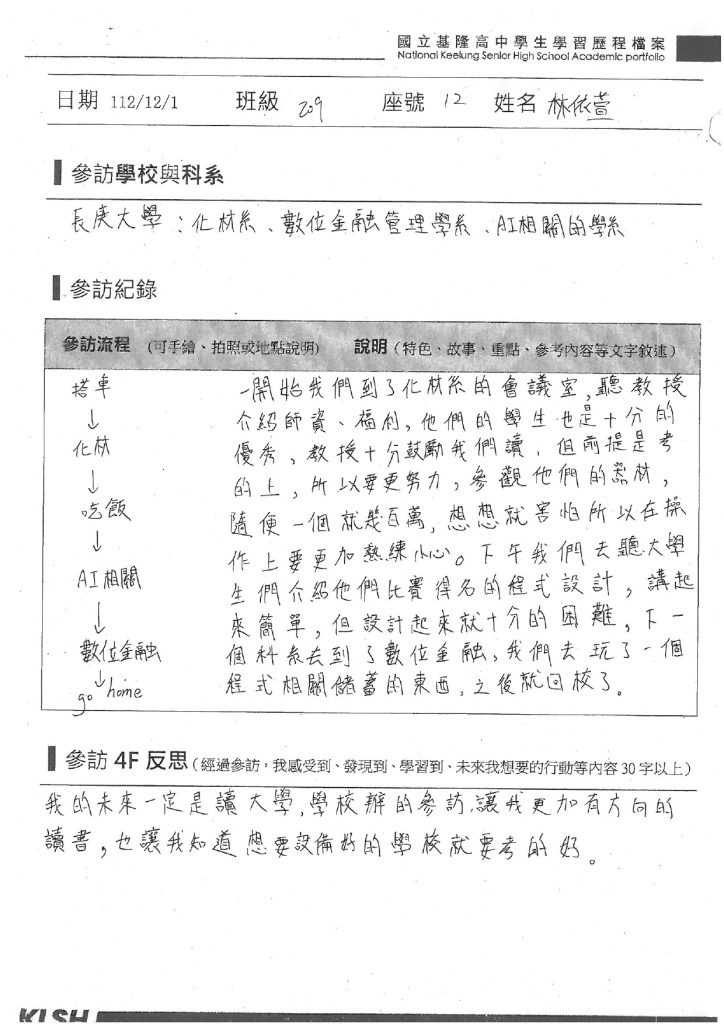 國立基隆高中學生學習歷程檔案
National Keelung Senior High School Academic portfolio
日期 112/12/1 班級 209 座號 12 姓名 林依萱
參訪學校與科系
長庚大學：化材系、數位金融管理學系、AI相關的學系
參訪紀錄
參訪流程 (可手繪、拍照或地點說明) 說明（特色、故事、重點、參考內容等文字敘述）
搭車
↓
化材
↓
吃飯
↓
AI相關
↓
數位金融
↓
go home
一開始我們到了化材系的會議室,聽教授
介紹師資、福利,他們的學生也是十分的
優秀,教授十分鼓勵我們讀,但前提是考
的上,所以要更努力,參觀他們的器材,
隨便一個就幾百萬,想想就害怕所以在操
作上要更加熟練小心。下午我們去聽大學
生們介紹他們比賽得名的程式設計,講起
來簡單,但設計起來就十分的困難,下一
個科系去到了數位金融,我們去玩了一個
程式相關儲蓄的東西,之後就回校了。
參訪 4F 反思（經過參訪，我感受到、發現到、學習到、未來我想要的行動等內容 30 字以上）
我的未來一定是讀大學,學校辦的參訪,讓我更加有方向的
讀書,也讓我知道想要設備好的學校就要考的好。
KLSH